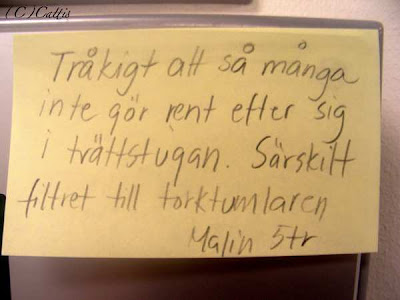 (C)Cattis
Tråkigt att så många
inte gör rent efter sig
i trättstugan. Särskilt
filtret till torktumlaren
Malin 5tr